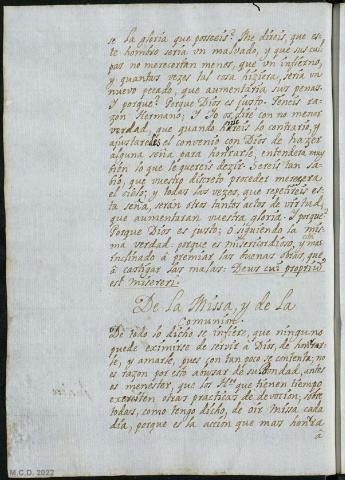 se la gloria que posseis? Me direis, que es-
te hombre seria un malvado, y que sus cul-
pas no merecerian menos, que un infierno,
y quantas vezes tal cosa hiziera, seria un
nuevo pecado, que aumentaria sus penas.
Y porque? Porque Dios es justo. Teneis ra-
zon Hermano; y Yo os dire con no menor
verdad, que quando hareis lo contrario, y
ajustareis el convenio con Dios de hazer
alguna seña para honrarle, entendera muy
bien lo que le quereis dezir. Sereis tan sa-
bio, que vuestro discreto proceder merecera
el cielo; y todas las vezes, que repetireis es-
ta seña, seran otros tantos actos de virtud,
que aumentaran vuestra gloria. Y porque?
Porque Dios es justo; o siguiendo la mis-
ma verdad: porque es misericordioso, y mas
inclinado à premiar las buenas obras, que
à castigar las malas: Deus cui propriu
est misereri.
De la Missa, y de la
Comunion.
De todo lo dicho se infiere, que ninguno
puede eximirse de servir à Dios, de honrar-
le, y amarle, pues con tan poco se contenta; no
es razon por esto abusar de su bondad, antes
es menester, que los que tienen tiempo
exerciten otras practicas de devocion; sobre
todas, como tengo dicho, de oir Missa cada
dia, porque es la accion que mas honra
a
M.C.D. 2022